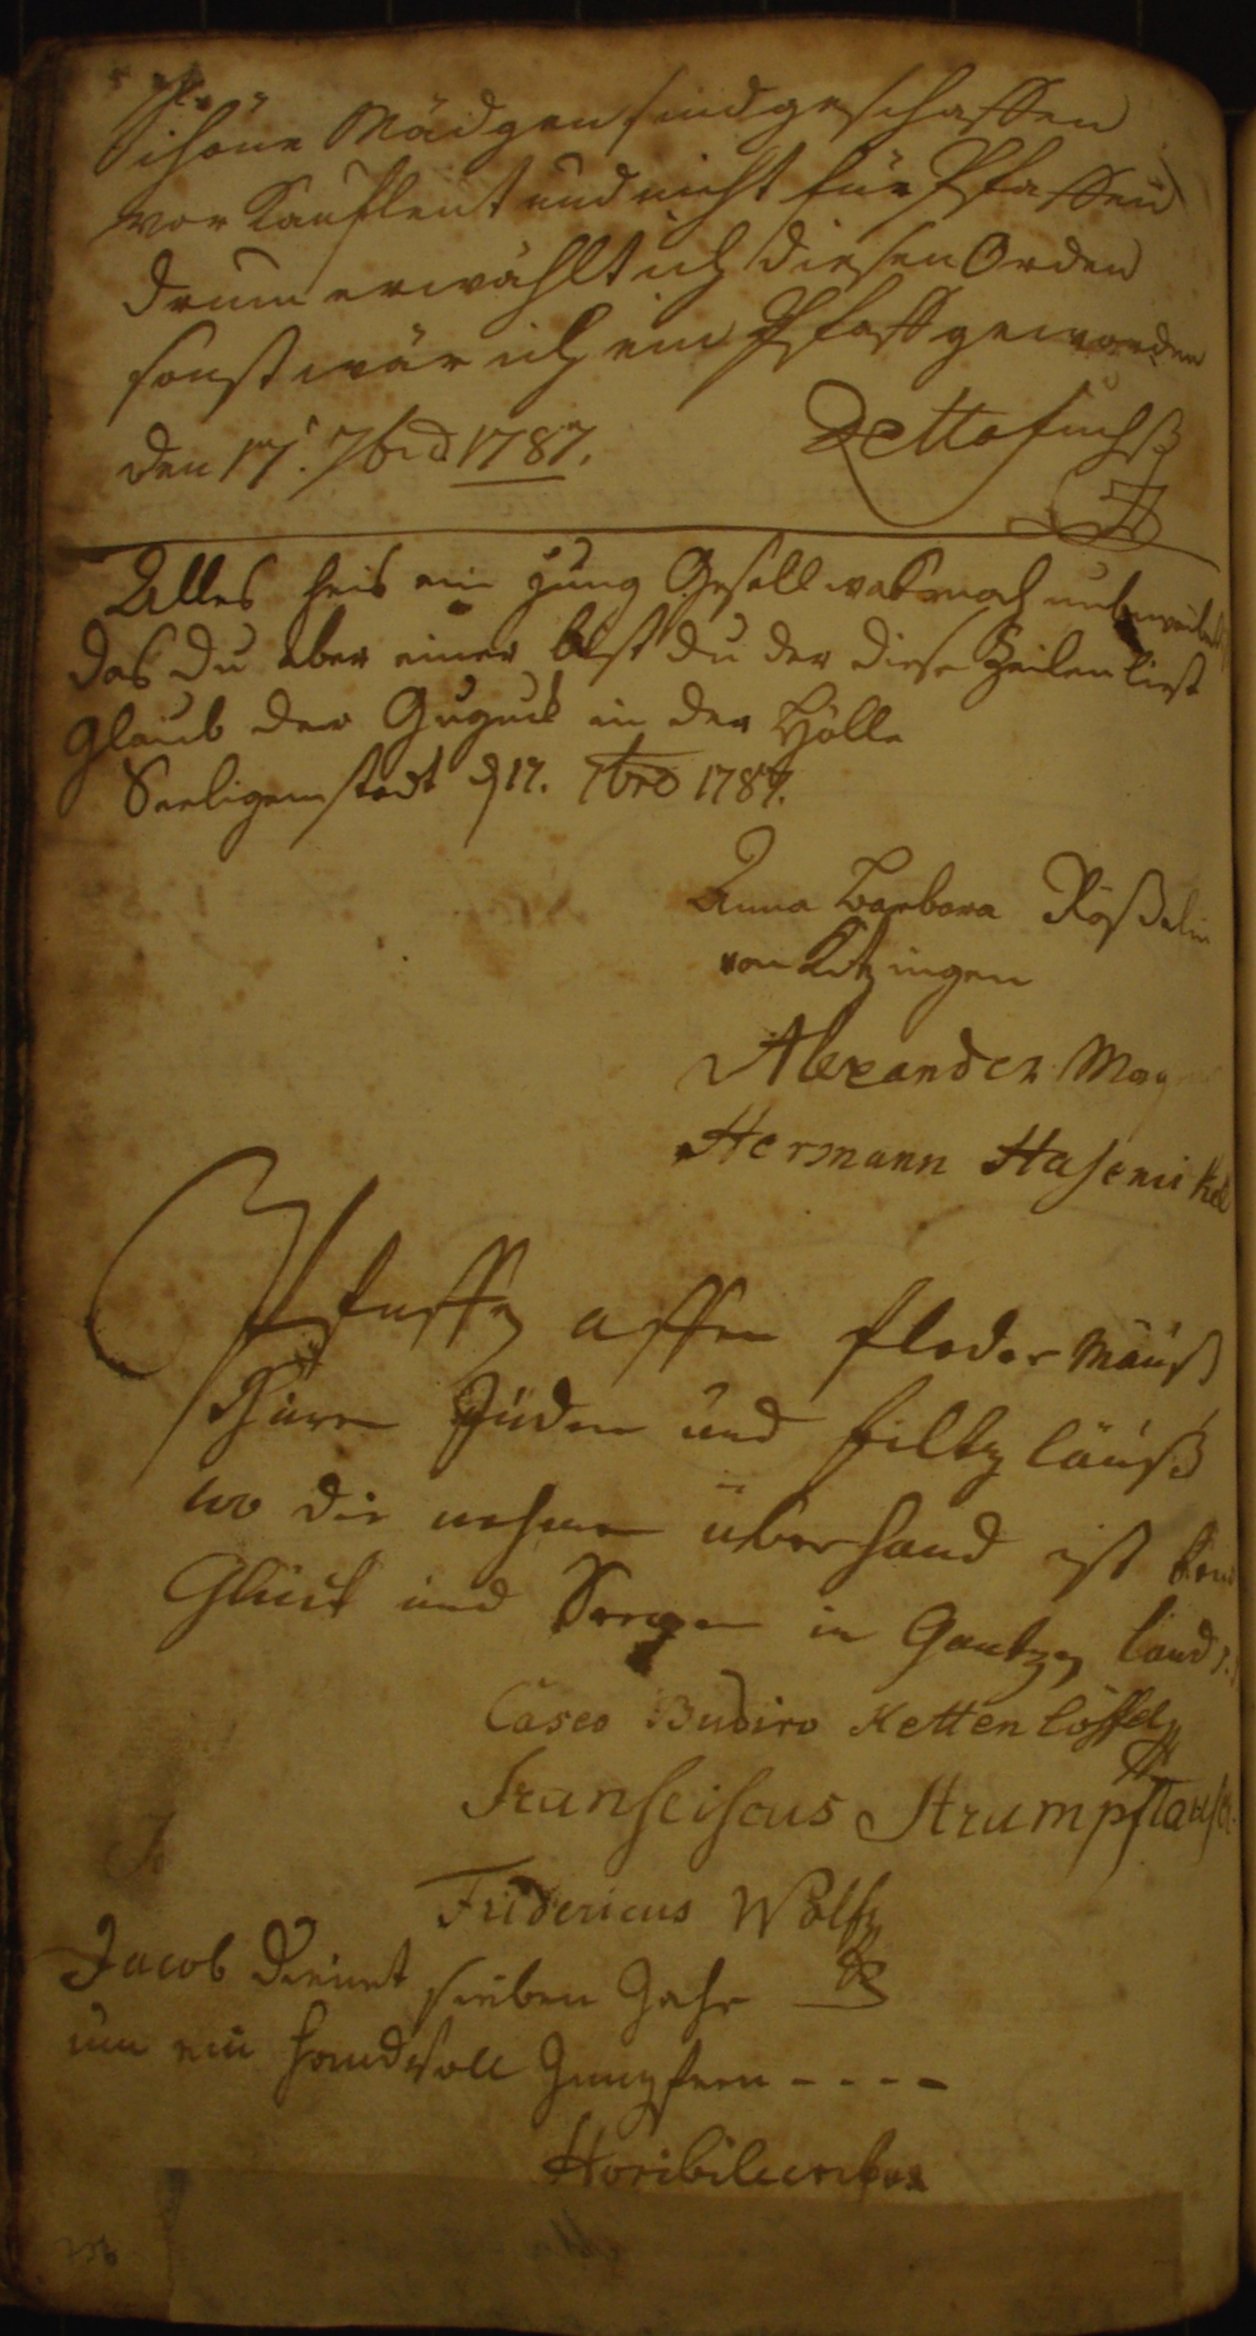 Schöne Mädgen sind geschaffen
vor Kaufleut und nicht für Pfaffen
drum erwählt ich diesen Orden
sonst wär ich ein Pfaff geworden
den 17. 7bris 1787.
Zettofuchß
Alles heis ein jung Gesell was noch unbeweibet
das du aber einer bist du der diese Zeilen liest
glaub der Guguck in der Hölle
Seeligenstadt d 17. 7bro 1787.
Anna Barbara Rößelin
von Kitzingen
Alexander Mag
Hermann Hasenickel
Pfaffen affen fleder Mäuß
Huren Juden und filtz läuß
wo die nehmen überhand ist kein
Glück und Seegen in Gantzen land
Caseo Budiro Kettenlöffel
Fransciscus Strumpf
Fridericus Wolff
Jacob Dienet sieben Jahr
um ein handvoll Jungfern - - - -
236